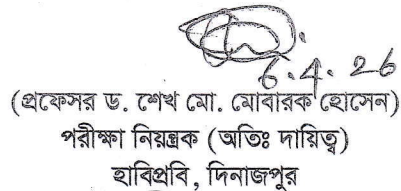 6.4.26
(প্রফেসর ড. শেখ মো. মোবারক হোসেন)
পরীক্ষা নিয়ন্ত্রক (অতিঃ দায়িত্ব)
হাবিপ্রবি, দিনাজপুর